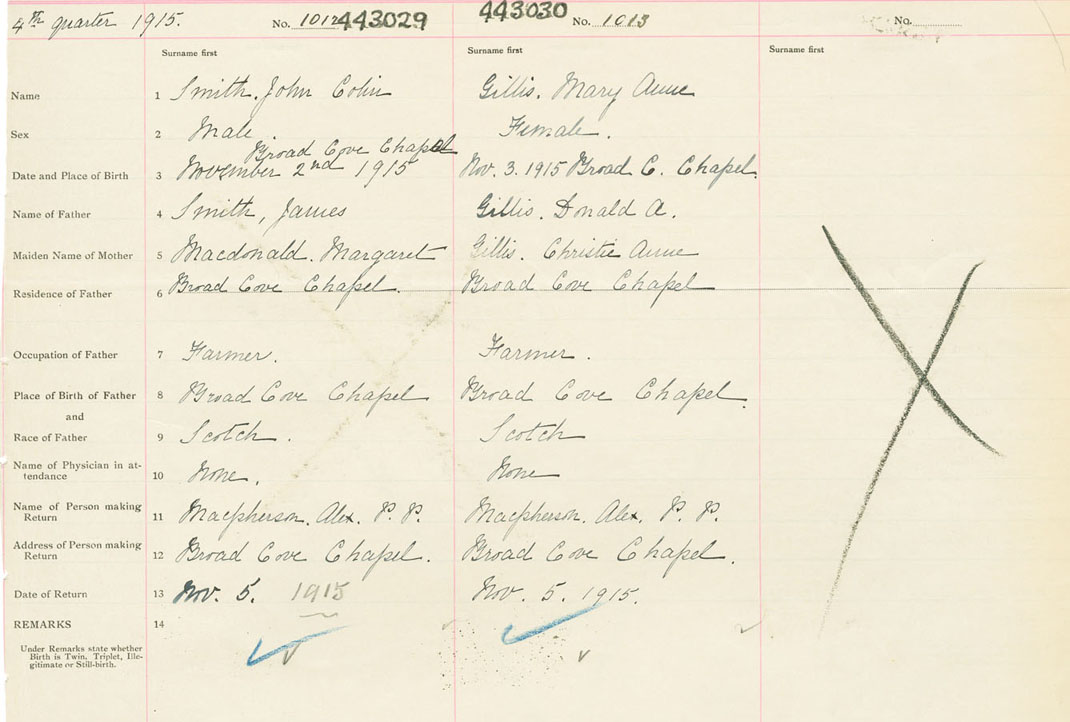 4th quarter 1915. No. 1012 443029 443030 No. 1013 No.
Surname first Surname first Surname first
Name 1 Smith. John Colin Gillis. Mary Anne
Sex 2 Male. Female.
Broad Cove Chapel
Date and Place of Birth 3 November 2nd 1915 Nov. 3. 1915 Broad C. Chapel.
Name of Father 4 Smith, James Gillis. Donald A.
Maiden Name of Mother 5 Macdonald. Margaret Gillis. Christie Anne
Residence of Father 6 Broad Cove Chapel. Broad Cove Chapel
Occupation of Father 7 Farmer. Farmer.
Place of Birth of Father 8 Broad Cove Chapel Broad Cove Chapel.
and
Race of Father 9 Scotch. Scotch
Name of Physician in at-
tendance 10 None. None
Name of Person making
Return 11 Macpherson. Alex. P. P. Macpherson. Alex. P. P.
Address of Person making
Return 12 Broad Cove Chapel. Broad Cove Chapel.
Date of Return 13 Nov. 5. 1915 Nov. 5. 1915.
REMARKS 14
Under Remarks state whether
Birth is Twin, Triplet, Ille-
gitimate or Still-birth.